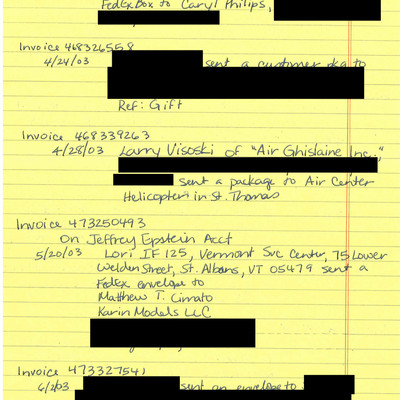 FedEx Box to Caryl Philips,
Invoice 468326558
4/24/03 sent a customer pkg to
Ref: Gift
Invoice 468339263
4/28/03 Larry Visoski of "Air Ghislaine Inc.,"
sent a package to Air Center
Helicopter in St. Thomas
Invoice 473250493
On Jeffrey Epstein Acct
5/20/03 Lori IF 125, Vermont Svc Center, 75 Lower
Welden Street, St. Albans, VT 05479 sent a
FedEx envelope to
Matthew T. Cinnato
Karin Models LLC
Invoice 473327541
6/2/03 sent an envelope to